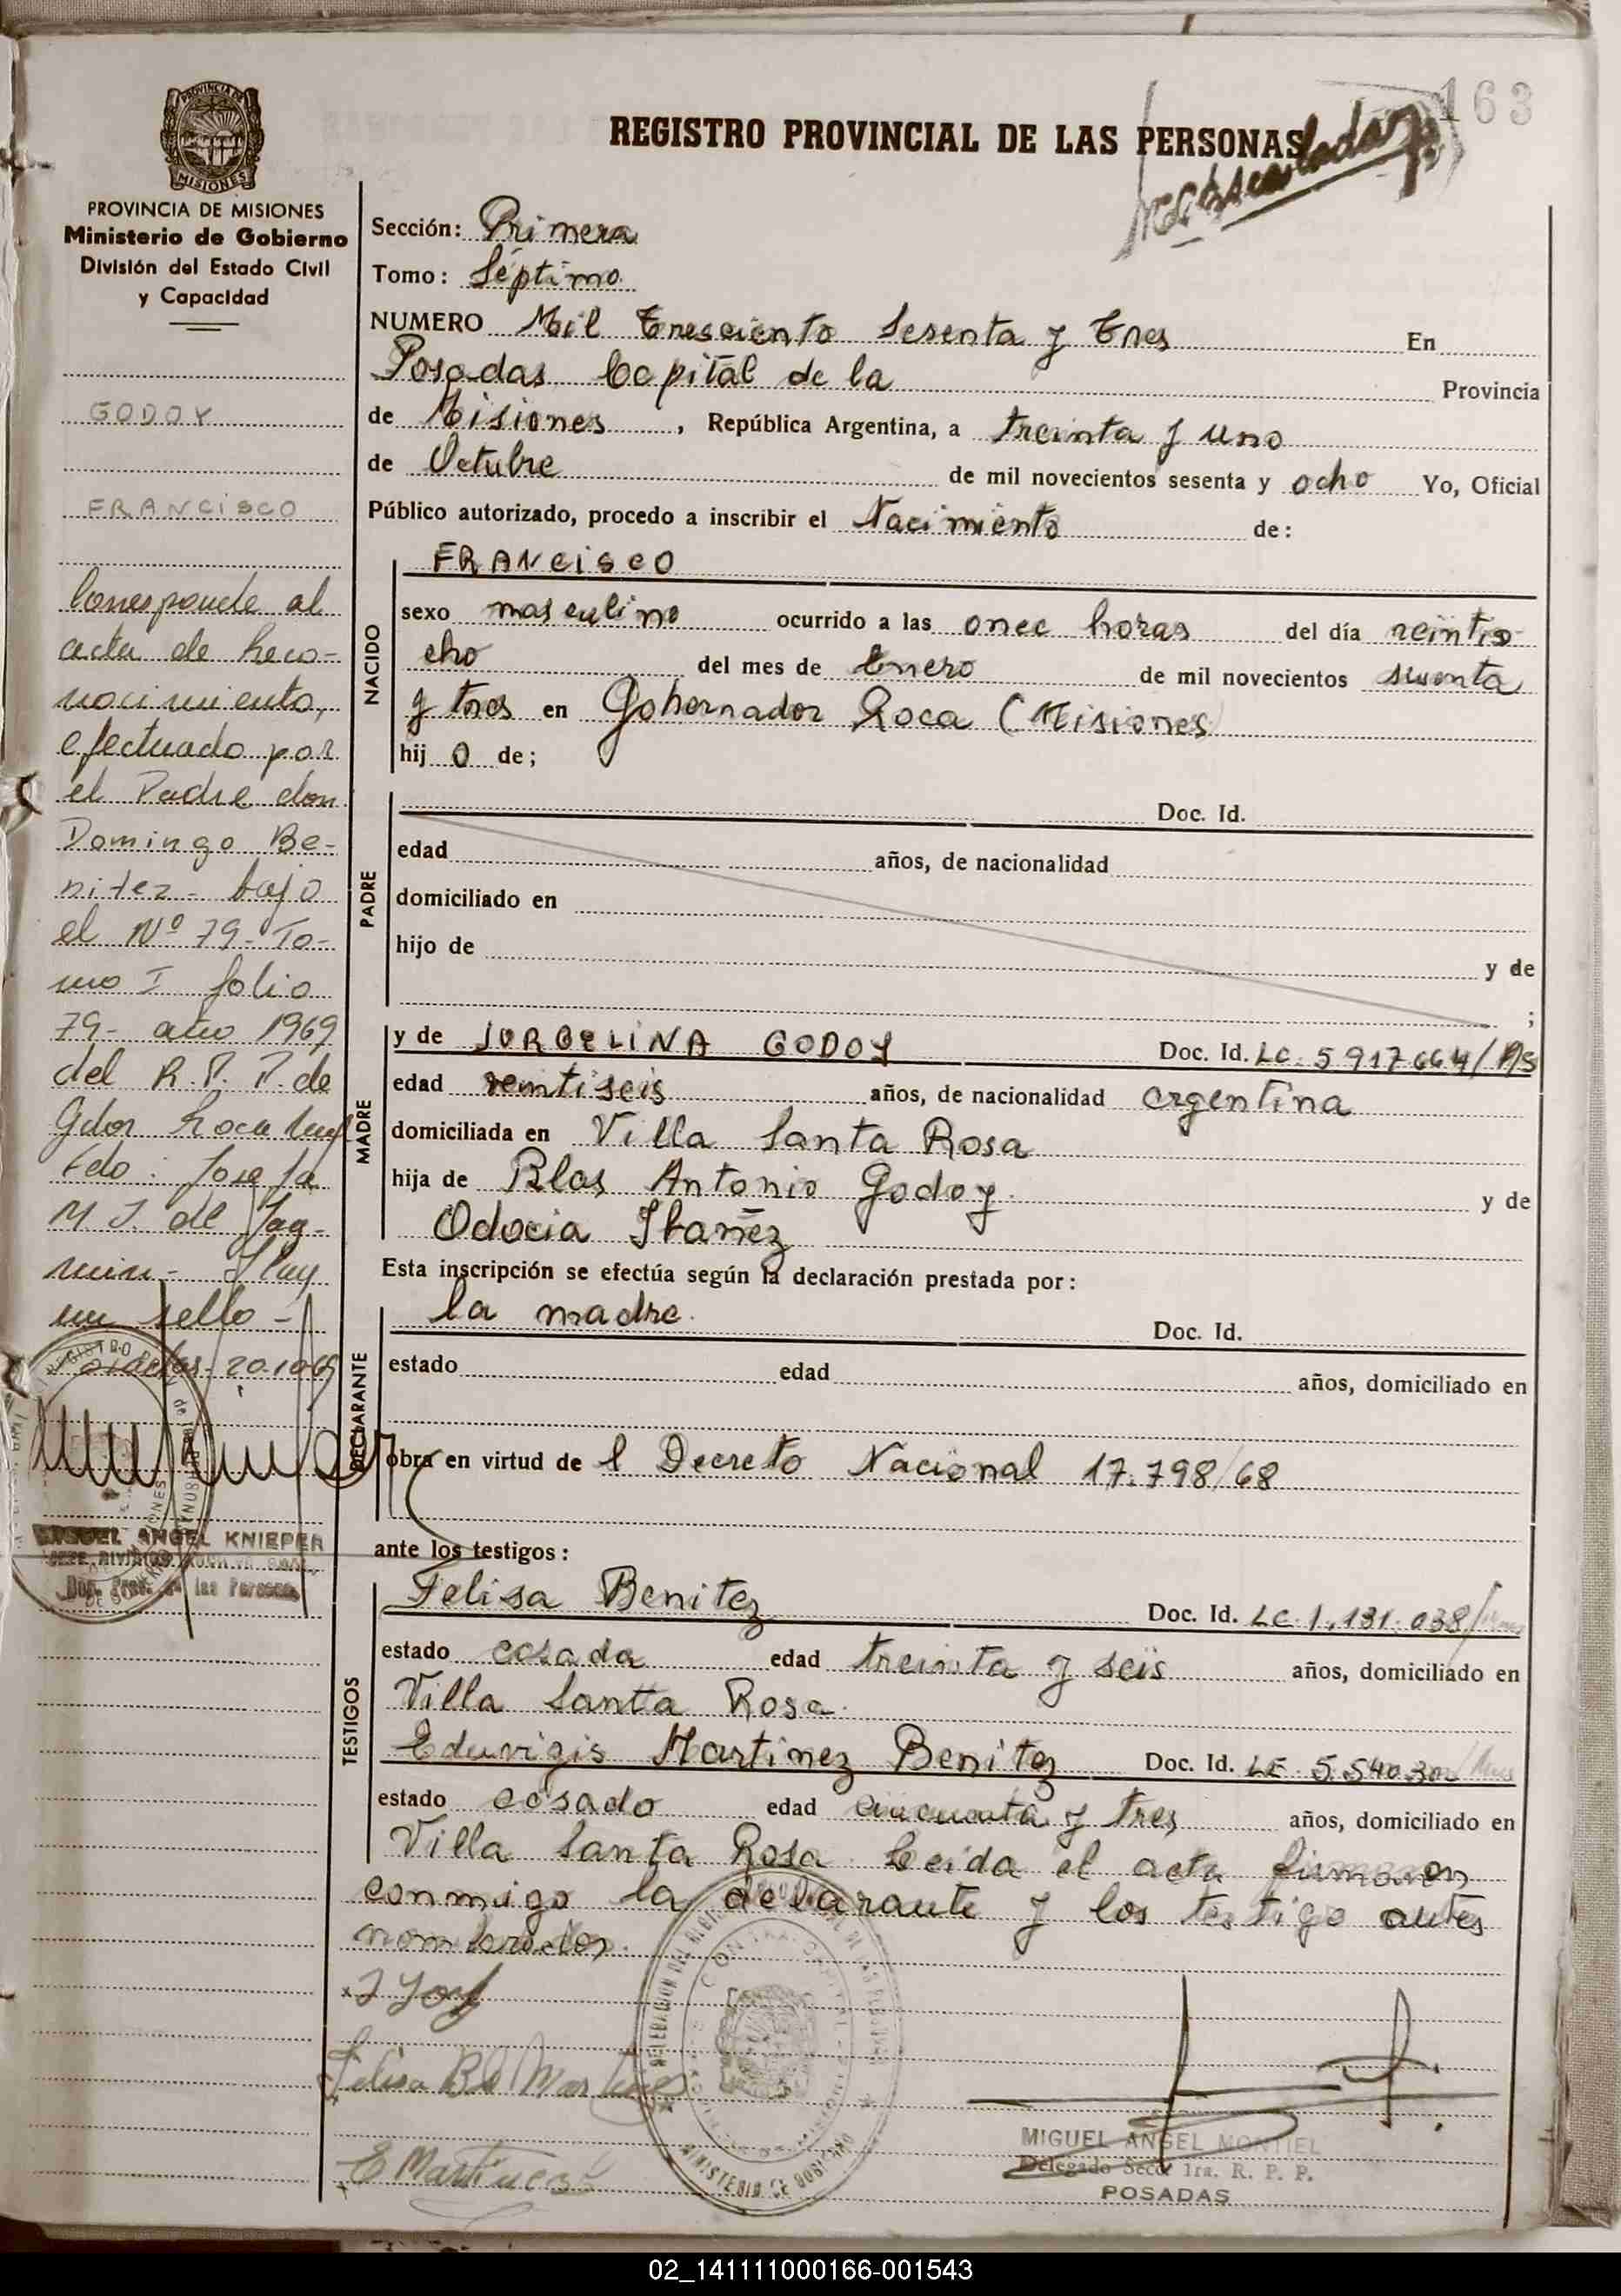 163
REGISTRO PROVINCIAL DE LAS PERSONAS
PROVINCIA DE
MISIONES
PROVINCIA DE MISIONES
Ministerio de Gobierno
División del Estado Civil
y Capacidad
GODOY
FRANCISCO
Corresponde al
acta de Reco-
nocimiento,
efectuado por
el Padre don
Domingo Be-
nitez - bajo
el Nº 79 - To-
mo I folio
79 - año 1969
del R. P. P. de
Gdor Roca
Fdo: Josefa
M J. de Yag-
min - Hay
un sello -
20-10-69
MIGUEL ANGEL KNIEPER
Sección: Primera
Tomo: Séptimo
NUMERO Mil Tresciento Sesenta y Tres En
Posadas Capital de la Provincia
de Misiones, República Argentina, a treinta y uno
de Octubre de mil novecientos sesenta y ocho Yo, Oficial
Público autorizado, procedo a inscribir el Nacimiento de:
NACIDO
FRANCISCO
sexo masculino ocurrido a las once horas del día veintio-
cho del mes de Enero de mil novecientos sesenta
y tres en Gobernador Roca (Misiones)
hij o de;
PADRE
Doc. Id.
edad años, de nacionalidad
domiciliado en
hijo de y de
;
MADRE
y de JORGELINA GODOY Doc. Id. LC. 5917664/
edad veintiseis años, de nacionalidad argentina
domiciliada en Villa Santa Rosa
hija de Blas Antonio Godoy y de
Odocia Ibañez
Esta inscripción se efectúa según la declaración prestada por:
DECLARANTE
la madre. Doc. Id.
estado edad años, domiciliado en
obra en virtud de l Decreto Nacional 17.798/68
ante los testigos:
TESTIGOS
Felisa Benitez Doc. Id. LC 1.131.038/
estado casada edad treinta y seis años, domiciliado en
Villa Santa Rosa.
Eduvigis Martinez Benitez Doc. Id. LE
estado casado edad cincuenta y tres años, domiciliado en
Villa Santa Rosa. Leida el acta firmaron
conmigo la declarante y los testigo antes
nombrados.
Felisa B d Martinez
E Martinez
MINISTERIO DE GOBIERNO
MIGUEL ANGEL MONTIEL
Delegado Secc. 1ra. R. P. P.
POSADAS
02_141111000166-001543